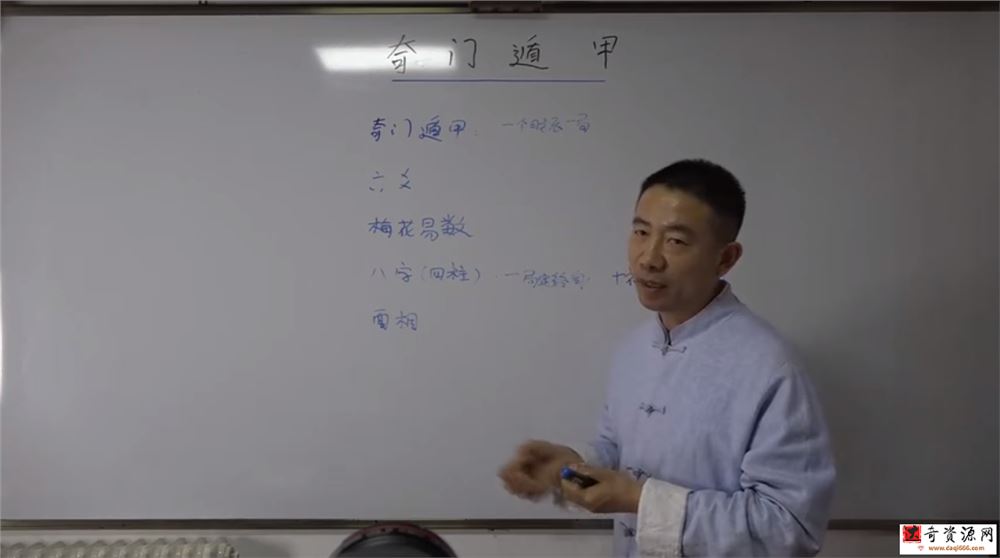 奇门遁甲
奇门遁甲：一个时辰一局
六爻
梅花易数
八字(四柱)：一局定终身 十
面相
大奇资源网
www.daqi666.com